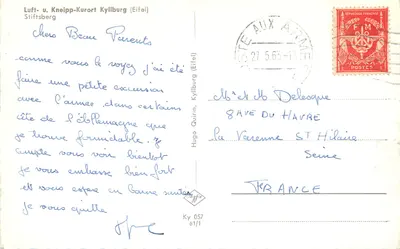 Luft- u. Kneipp-Kurort Kyllburg (Eifel)
Stiftsberg
Chers Beaux Parents
comme vous le voyez j'ai été
faire une petite excursion
avec l'armée dans certains
côte de l'Allemagne que
je trouve formidable. J'y
compte vous voir bientôt
je vous embrasse bien fort
et vous espère en bonne santée
je vous quitte
Hugo Quirin, Kyllburg (Eifel)
Ky 057
POSTE AUX ARMEES
27.5.65
F M
POSTES
Mr et M Delesque
8 AVE DU HAVRE
La Varenne St Hilaire
Seine
FRANCE